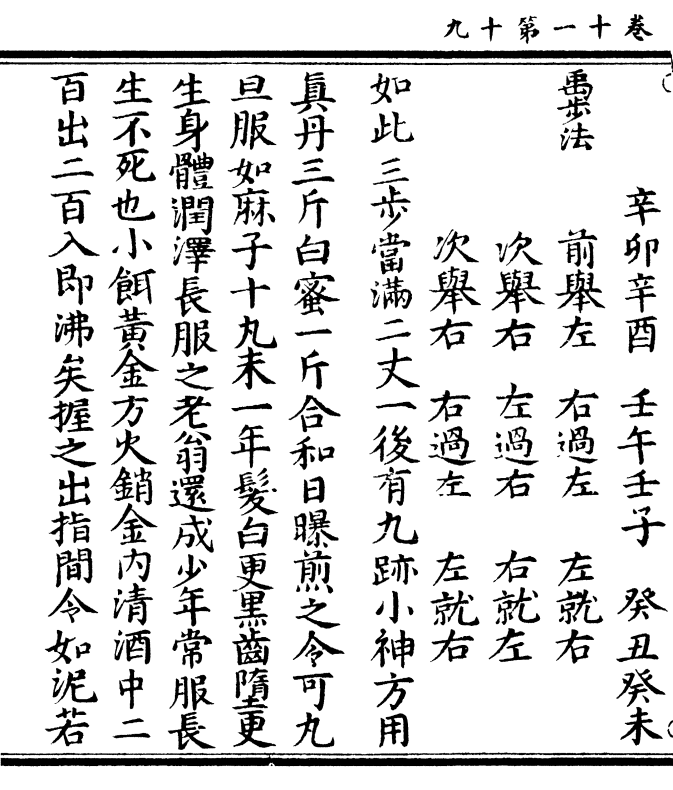 卷十一第十九
辛卯辛酉　壬午壬子　癸丑癸未
禹步法　前舉左　右過左　左就右
次舉右　左過右　右就左
次舉右　右過左　左就右
如此三步當滿二丈一後有九跡小神方用
真丹三斤白蜜一斤合和日曝煎之令可九
旦服如麻子十丸未一年髮白更黑齒墮更
生身體潤澤長服之老翁還成少年常服長
生不死也小餌黃金方火銷金內清酒中二
百出二百入即沸矣握之出指間令如泥若